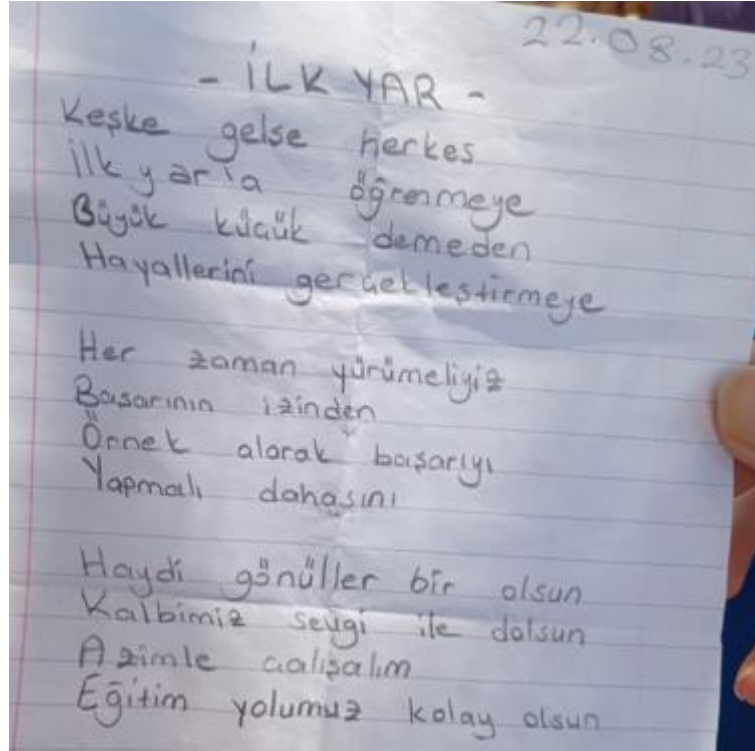 22.08.23
- İLK YAR -
Keşke gelse herkes
İlk yar'la öğrenmeye
Büyük küçük demeden
Hayallerini gerçekleştirmeye
Her zaman yürümeliyiz
Başarının izinden
Örnek alarak başarıyı
Yapmalı dahasını
Haydi gönüller bir olsun
Kalbimiz sevgi ile dolsun
Azimle çalışalım
Eğitim yolumuz kolay olsun